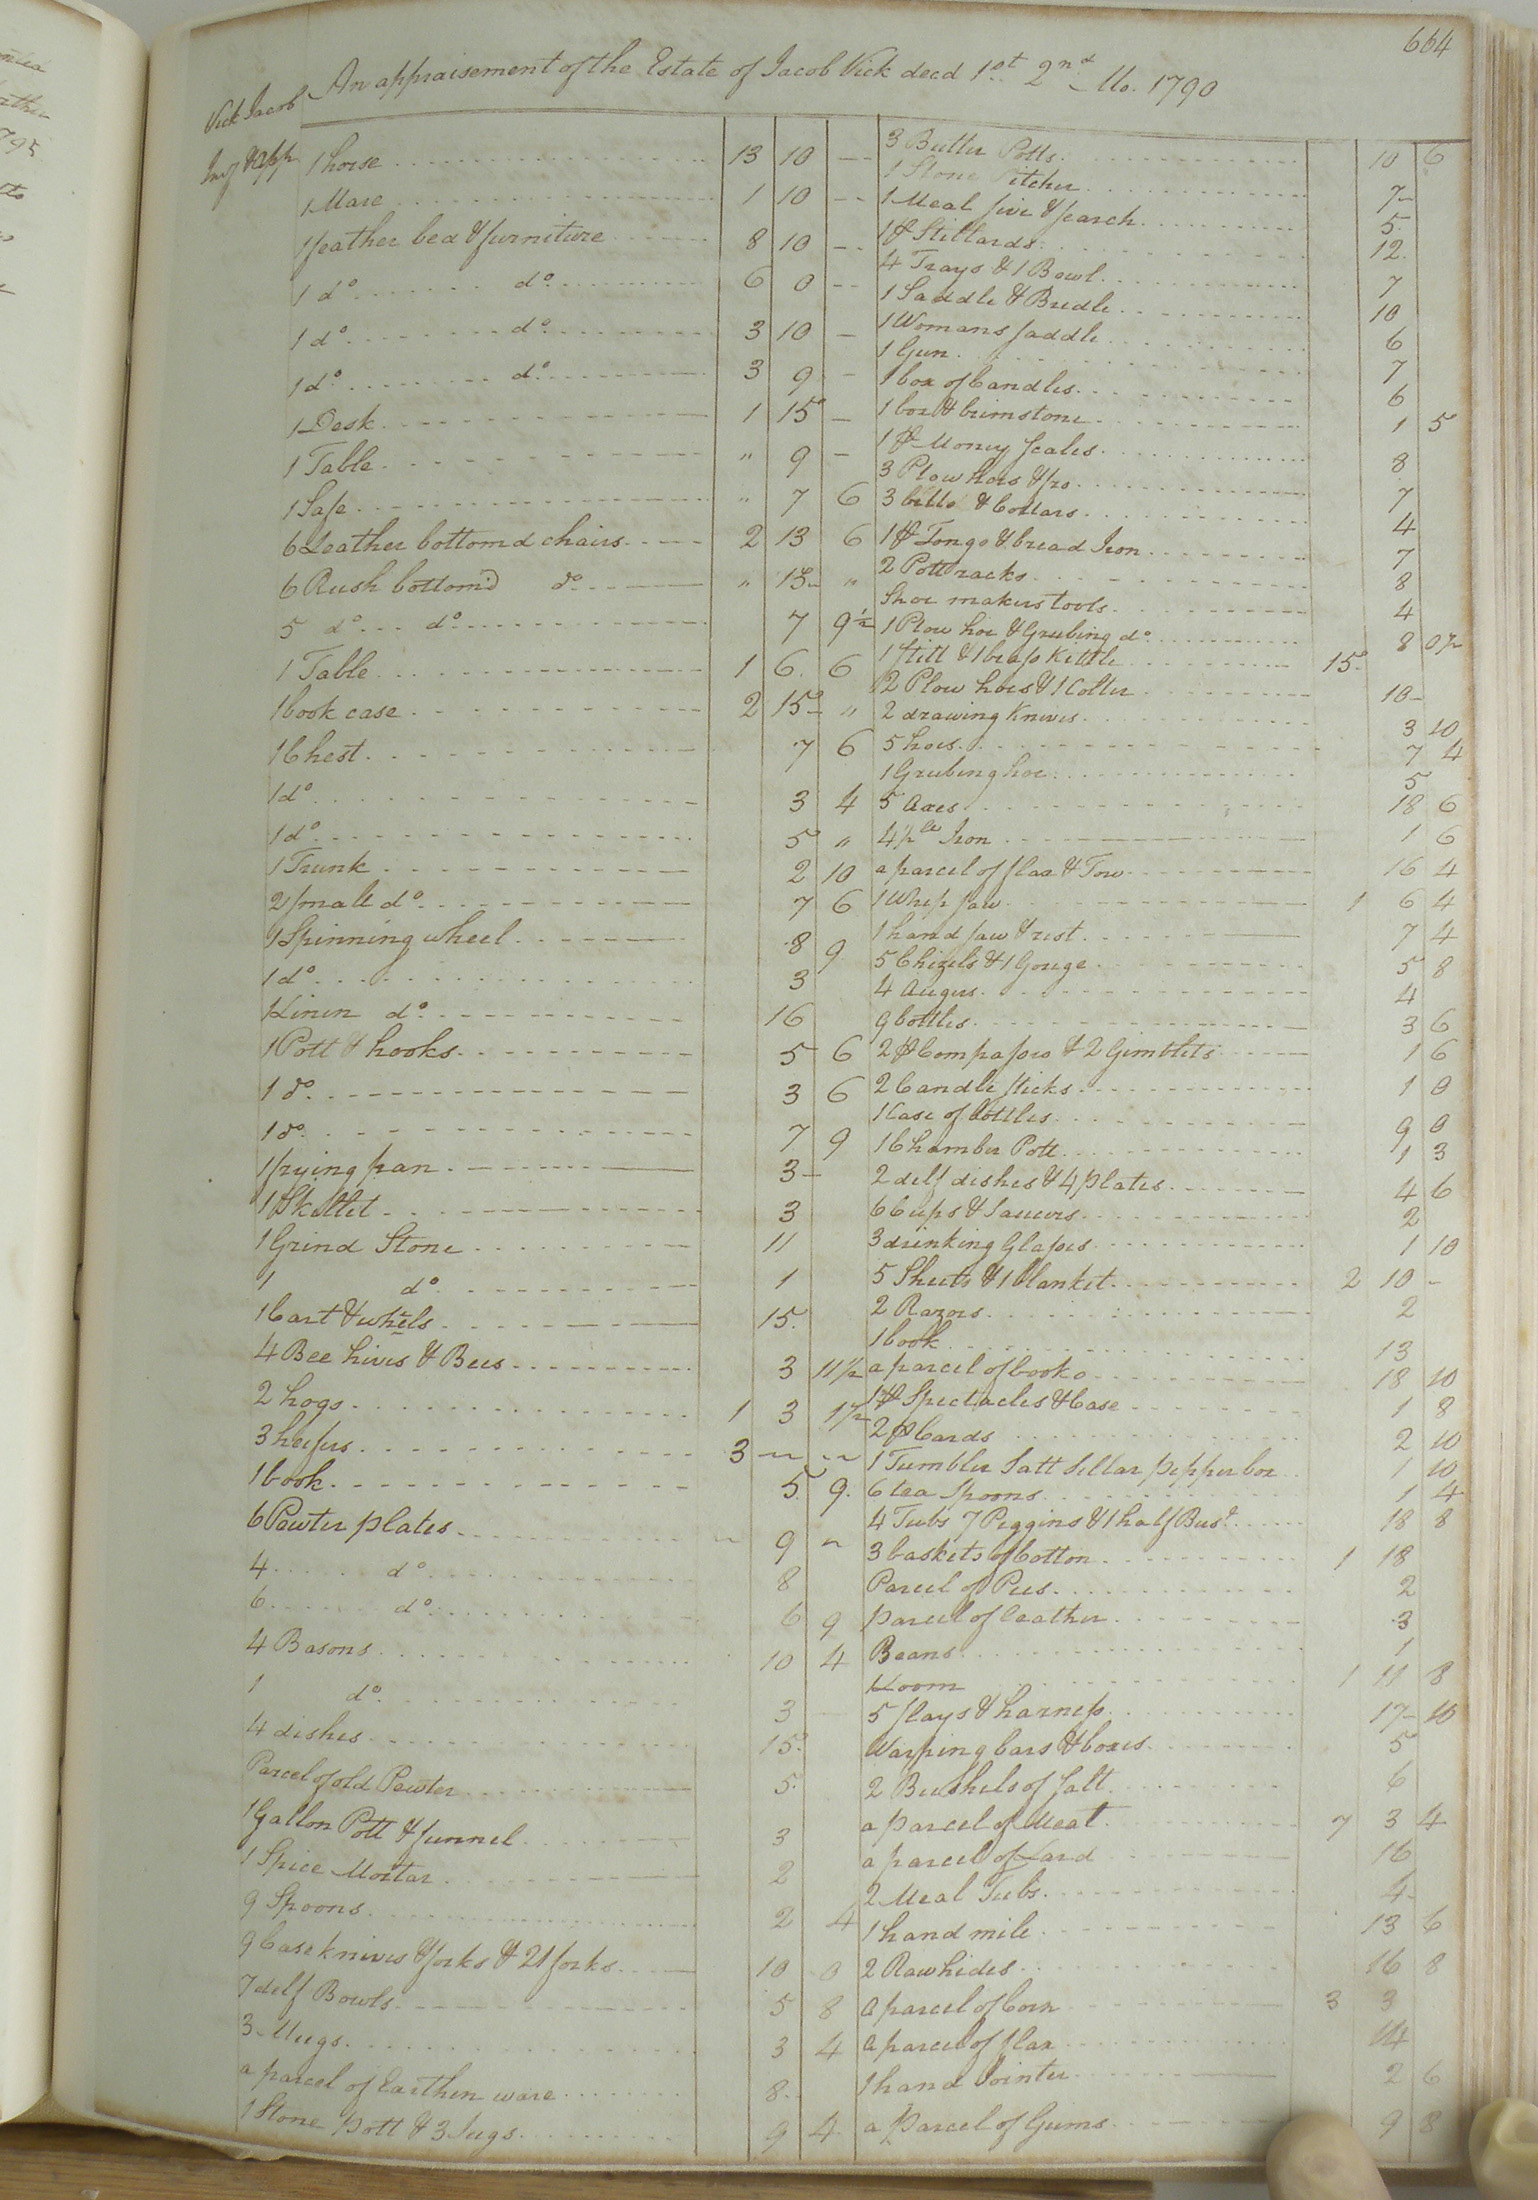 664
An appraisement of the Estate of Jacob Vick decd 1st 2nd Mo. 1790
Vick Jacob
Inv & App
1 horse 13 10 —
1 Mare 1 10 —
1 feather bed & furniture 8 10 —
1 do do 6 0 —
1 do do 3 10 —
1 do do 3 9 —
1 Desk 1 15 —
1 Table " 9 —
1 Safe " 7 6
6 Leather bottomd chairs 2 13 6
6 Rush bottom'd do " 15 "
5 do do 7 9½
1 Table 1 6 6
1 book case 2 15 "
1 Chest 7 6
1 do 3 4
1 do 5 "
1 Trunk 2 10
2 small do 7 6
1 Spinning wheel 8 9
1 do 3
1 Linen do 16
1 Pott & hooks 5 6
1 do 3 6
1 do 7 9
1 frying pan 3 —
1 Skillet 3
1 Grind Stone 11
1 do 1
1 Cart & wheels 15
4 Bee hives & Bees 3 11½
2 hogs 1 3 1½
3 heifers 3 — —
1 book 5 9
6 Pewter plates — 9 —
4 do 8
6 do 6 9
4 Basons 10 4
1 do 3
4 dishes 15
Parcel of old Pewter 5
1 Gallon Pott & funnel 3
1 Spice Mortar 2
9 Spoons 2 4
9 Case knives & forks & 21 forks 10 0
7 delf Bowls 5 8
3 Mugs 3 4
a parcel of Earthen ware 8
1 Stone Pott & 3 Jugs 9 4
3 Butter Potts 10 6
1 Stone Pitcher 7
1 Meal sive & searck 5
1 pr Stillards 12
4 Trays & 1 Bowl 7
1 Saddle & Bridle 10
1 Womans saddle 6
1 Gun 7
1 box of Candles 6
1 box & brimstone 1 5
1 pr Money Scales 8
3 Plow hoes & 7
3 bells & Collars 4
1 pr Tongs & bread Iron 7
2 Pott racks 8
Shoe makers tools 4
1 Plow hoe & Grubing do 8 0½
1 still & 1 brass Kittle 15
2 Plow hoes & 1 Colter 10
2 drawing Knives 3 10
5 hoes 7 4
1 Grubing hoe 5
5 Axes 18 6
4 pcs Iron 1 6
a parcel of flax & Tow 16 4
1 Whip saw 1 6 4
1 hand saw & rest 7 4
5 Chizels & 1 Gouge 5 8
4 Augurs 4
9 bottles 3 6
2 pr Compasses & 2 Gimblets 1 6
2 Candle sticks 1 0
1 Case of bottles 9 0
1 Chamber Pott 1 3
2 delf dishes & 4 plates 4 6
6 Cups & Saucers 2
3 drinking Glasses 1 10
5 Sheets & 1 blanket 2 10 —
2 Razors 2
1 book 13
a parcel of books 18 10
1 pr Spectacles & Case 1 8
2 pr Cards 2 10
1 Tumbler Salt Sellar pepper box 1 10
6 tea Spoons 1 4
4 Tubs 7 Piggins & 1 half Bust 18 8
3 baskets of Cotton 1 18
Parcel of Pees 2
parcel of leather 3
Beans 1
1 Loom 1 11 8
5 slays & harness 17 10
Warping bars & boxes 5
2 Bushels of salt 6
a parcel of Meat 7 3 4
a parcel of Lard 16
2 Meal Tubs 4
1 hand mile 13 6
2 Rawhides 16 8
a parcel of Corn 3 3
a parcel of flax 14
1 hand Jointer 2 6
a Parcel of Gums 9 8